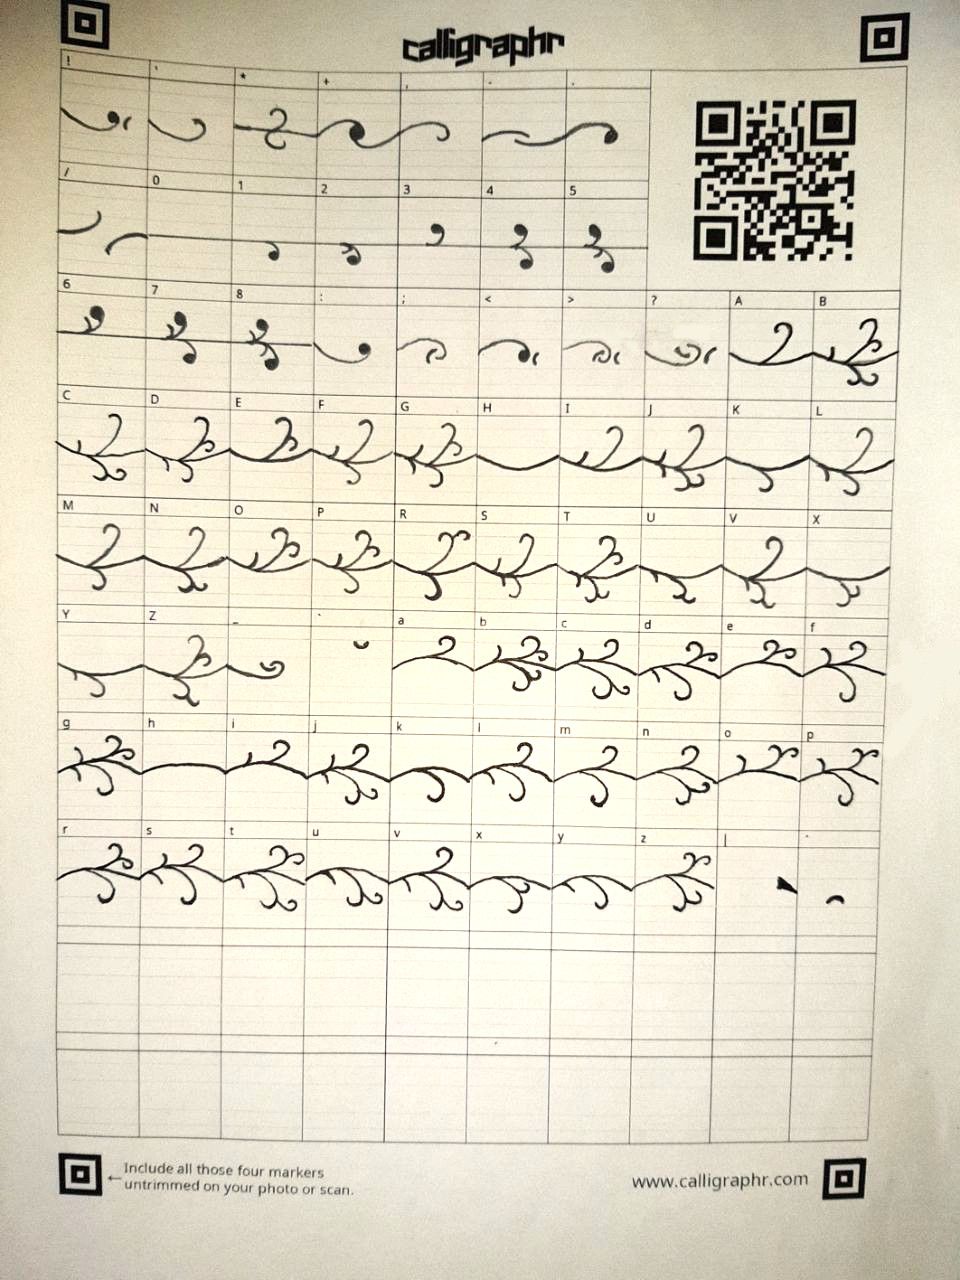 calligraphr
! ' * + , - .
/ 0 1 2 3 4 5
6 7 8 : ; < > ? A B
C D E F G H I J K L
M N O P R S T U V X
Y Z _ ` a b c d e f
g h i j k l m n o p
r s t u v x y z |
Include all those four markers
← untrimmed on your photo or scan.
www.calligraphr.com